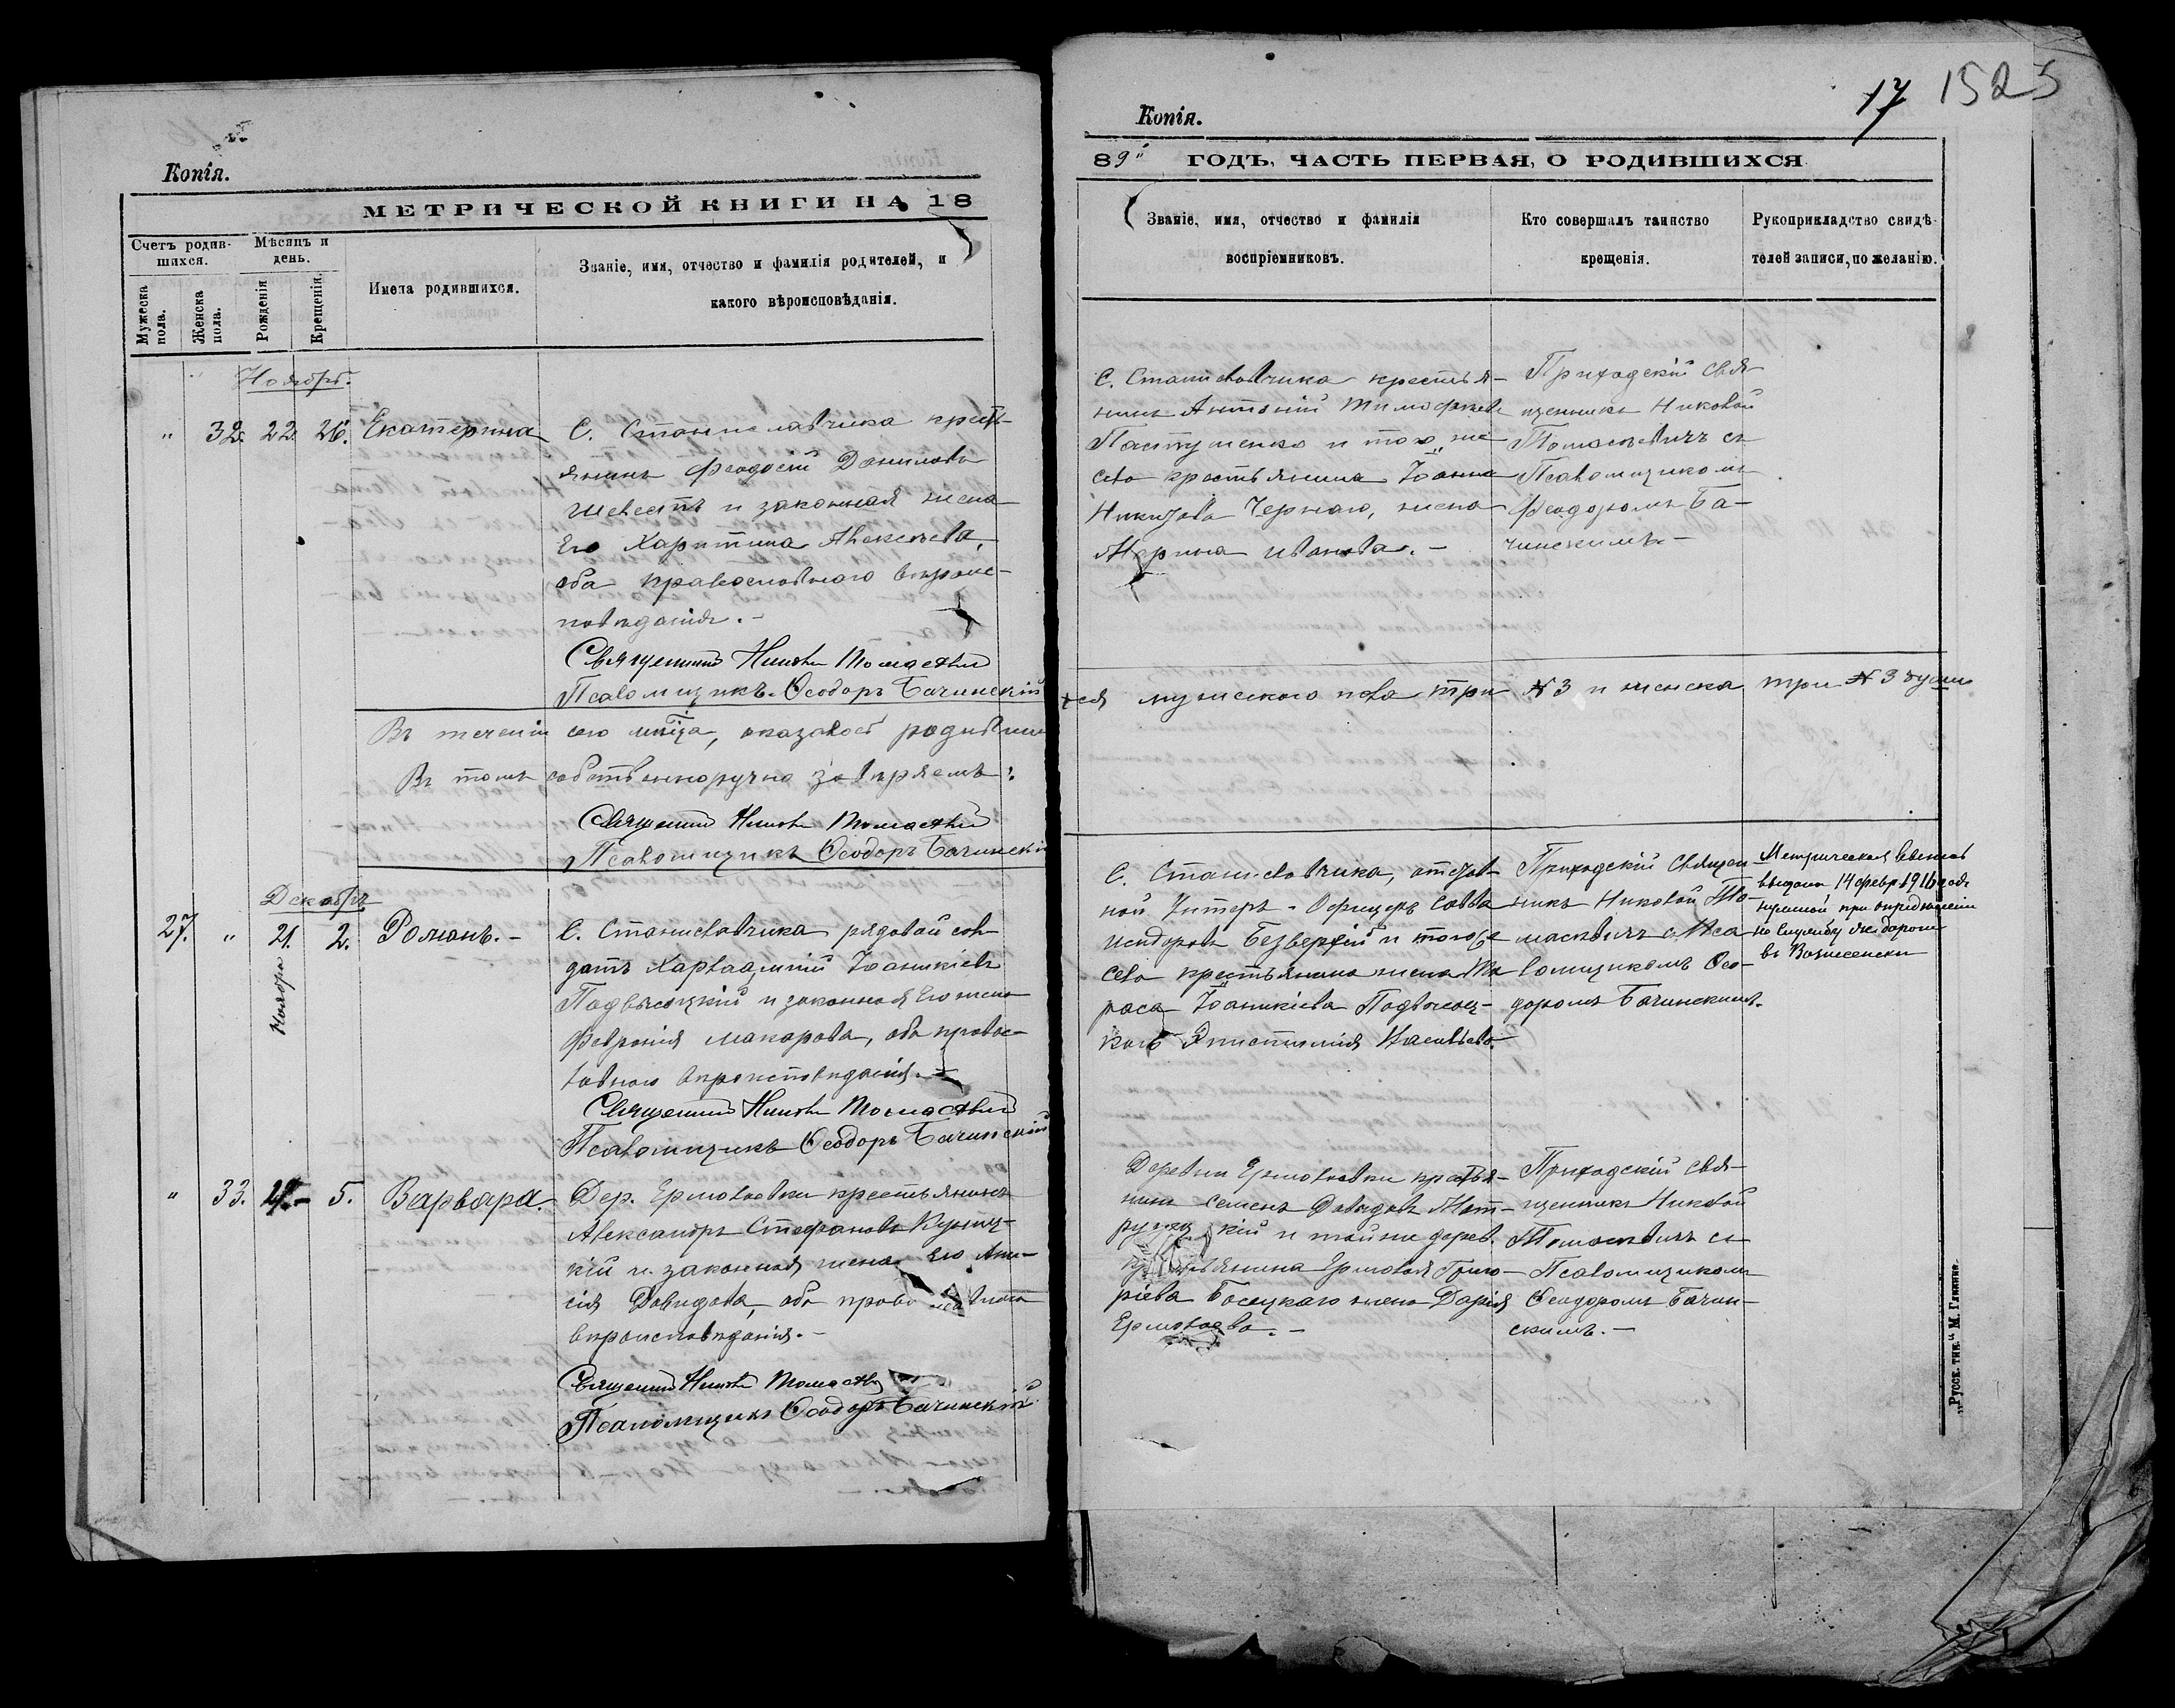 Копія.
МЕТРИЧЕСКОЙ КНИГИ НА 18
Счетъ родив-
шихся.
Мѣсяцъ и
день.
Мужеска
пола.
Женска
пола.
Рожденія
Крещенія.
Имена родившихся.
Званіе, имя, отчество и фамилія родителей, и
какого вѣроисповѣданія.
Ноябрь.
" 32. 22. 26. Екатерина
С. Станиславчика кресть-
янинъ Феодосій Даниловъ
и законная жена
Его Харитина Алексѣева,
оба православнаго вѣроис-
повѣданія.-
Священникъ
Псаломщикъ Ѳеодоръ Бачинскій
Въ теченіи сего мѣсяца, оказалось родивши
Въ томъ собственноручно завѣряемъ:
Священникъ
Псаломщикъ Ѳеодоръ Бачинскій
Декабрь
27. " 21. 2. Романъ.-
Ноября
С. Станиславчика рядовой сол-
датъ Харлампій Іоаникіевъ
Подвысоцкій и законная Его жена
Феvронія Макарова, оба правос-
лавнаго вѣроисповѣданія.-
Священникъ
Псаломщикъ Ѳеодоръ Бачинскій
" 33. 5. Варвара.
Дер. Ермолаевки крестьянинъ
Александръ Стефановъ
и законная жена Его Ани-
сія Давидова, оба православнаго
вѣроисповѣданія.-
Священникъ
Псаломщикъ Ѳеодоръ Бачинскій
17 1525
Копія.
89 ГОДЪ, ЧАСТЬ ПЕРВАЯ, О РОДИВШИХСЯ
Званіе, имя, отчество и фамилія
воспріемниковъ.
Кто совершалъ таинство
крещенія.
Рукоприкладство свидѣ-
телей записи, по желанію.
С. Станиславчика крестья-
нинъ Антоній Тимофѣевъ
Пастушенко и того же
села крестьянина Іоанна
Чернаго, жена
Марина Иванова.-
Приходскій Свя-
щенникъ Николай
Томасѣвичъ съ
Псаломщикомъ
Феодоромъ Ба-
чинскимъ.-
хся мужескаго пола три № 3 и женска три № 3 души
С. Станиславчика, отстав-
ной Унтеръ-Офицеръ Савва
Исидоровъ и того же
села крестьянина жена Та-
раса Іоаникіева Подвысоц-
каго
Приходскій Священ-
никъ Николай То-
масѣвичъ съ Пса-
ломщикомъ Ѳео-
доромъ Бачинскимъ.
Метрическая
выдана 14 февр. 1916 года
при опредѣленіи
на службу
въ Вознесенскѣ
Деревни Ермолаевки крестья-
нинъ Семенъ Давидовъ
и той же дерев.
крестьянина Ермолая Григо-
ріева жена Дарія
Ермолаева.-
Приходскій Свя-
щенникъ Николай
Томасѣвичъ съ
Псаломщикомъ
Ѳеодоромъ Бачин-
скимъ.-
„Русск. тип." М. Глинка.